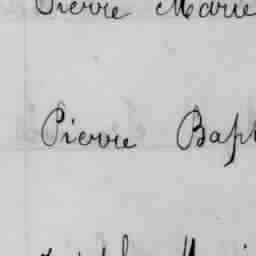 Pierre Marie
Pierre Bapt